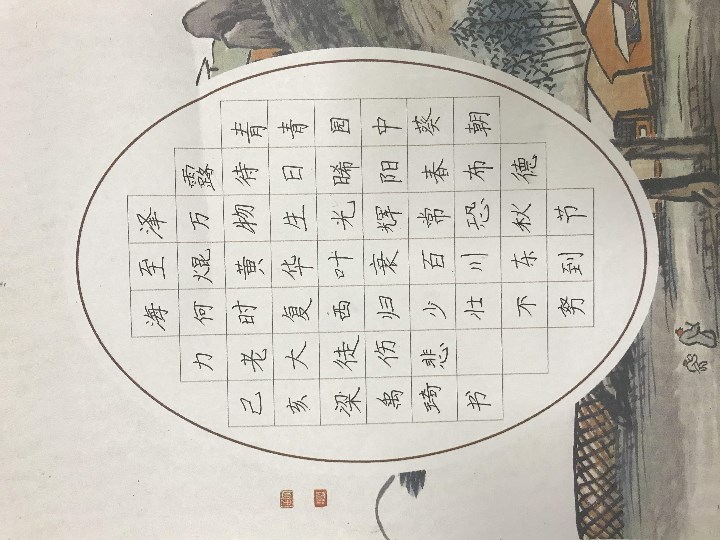 青青园中葵朝
露待日晞阳春布德
泽万物生光辉常恐秋节
至焜黄华叶衰百川东到
海何时复西归少壮不努
力老大徒伤悲
己亥梁禹琦书